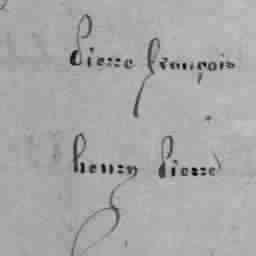 pierre françois
henry pierre